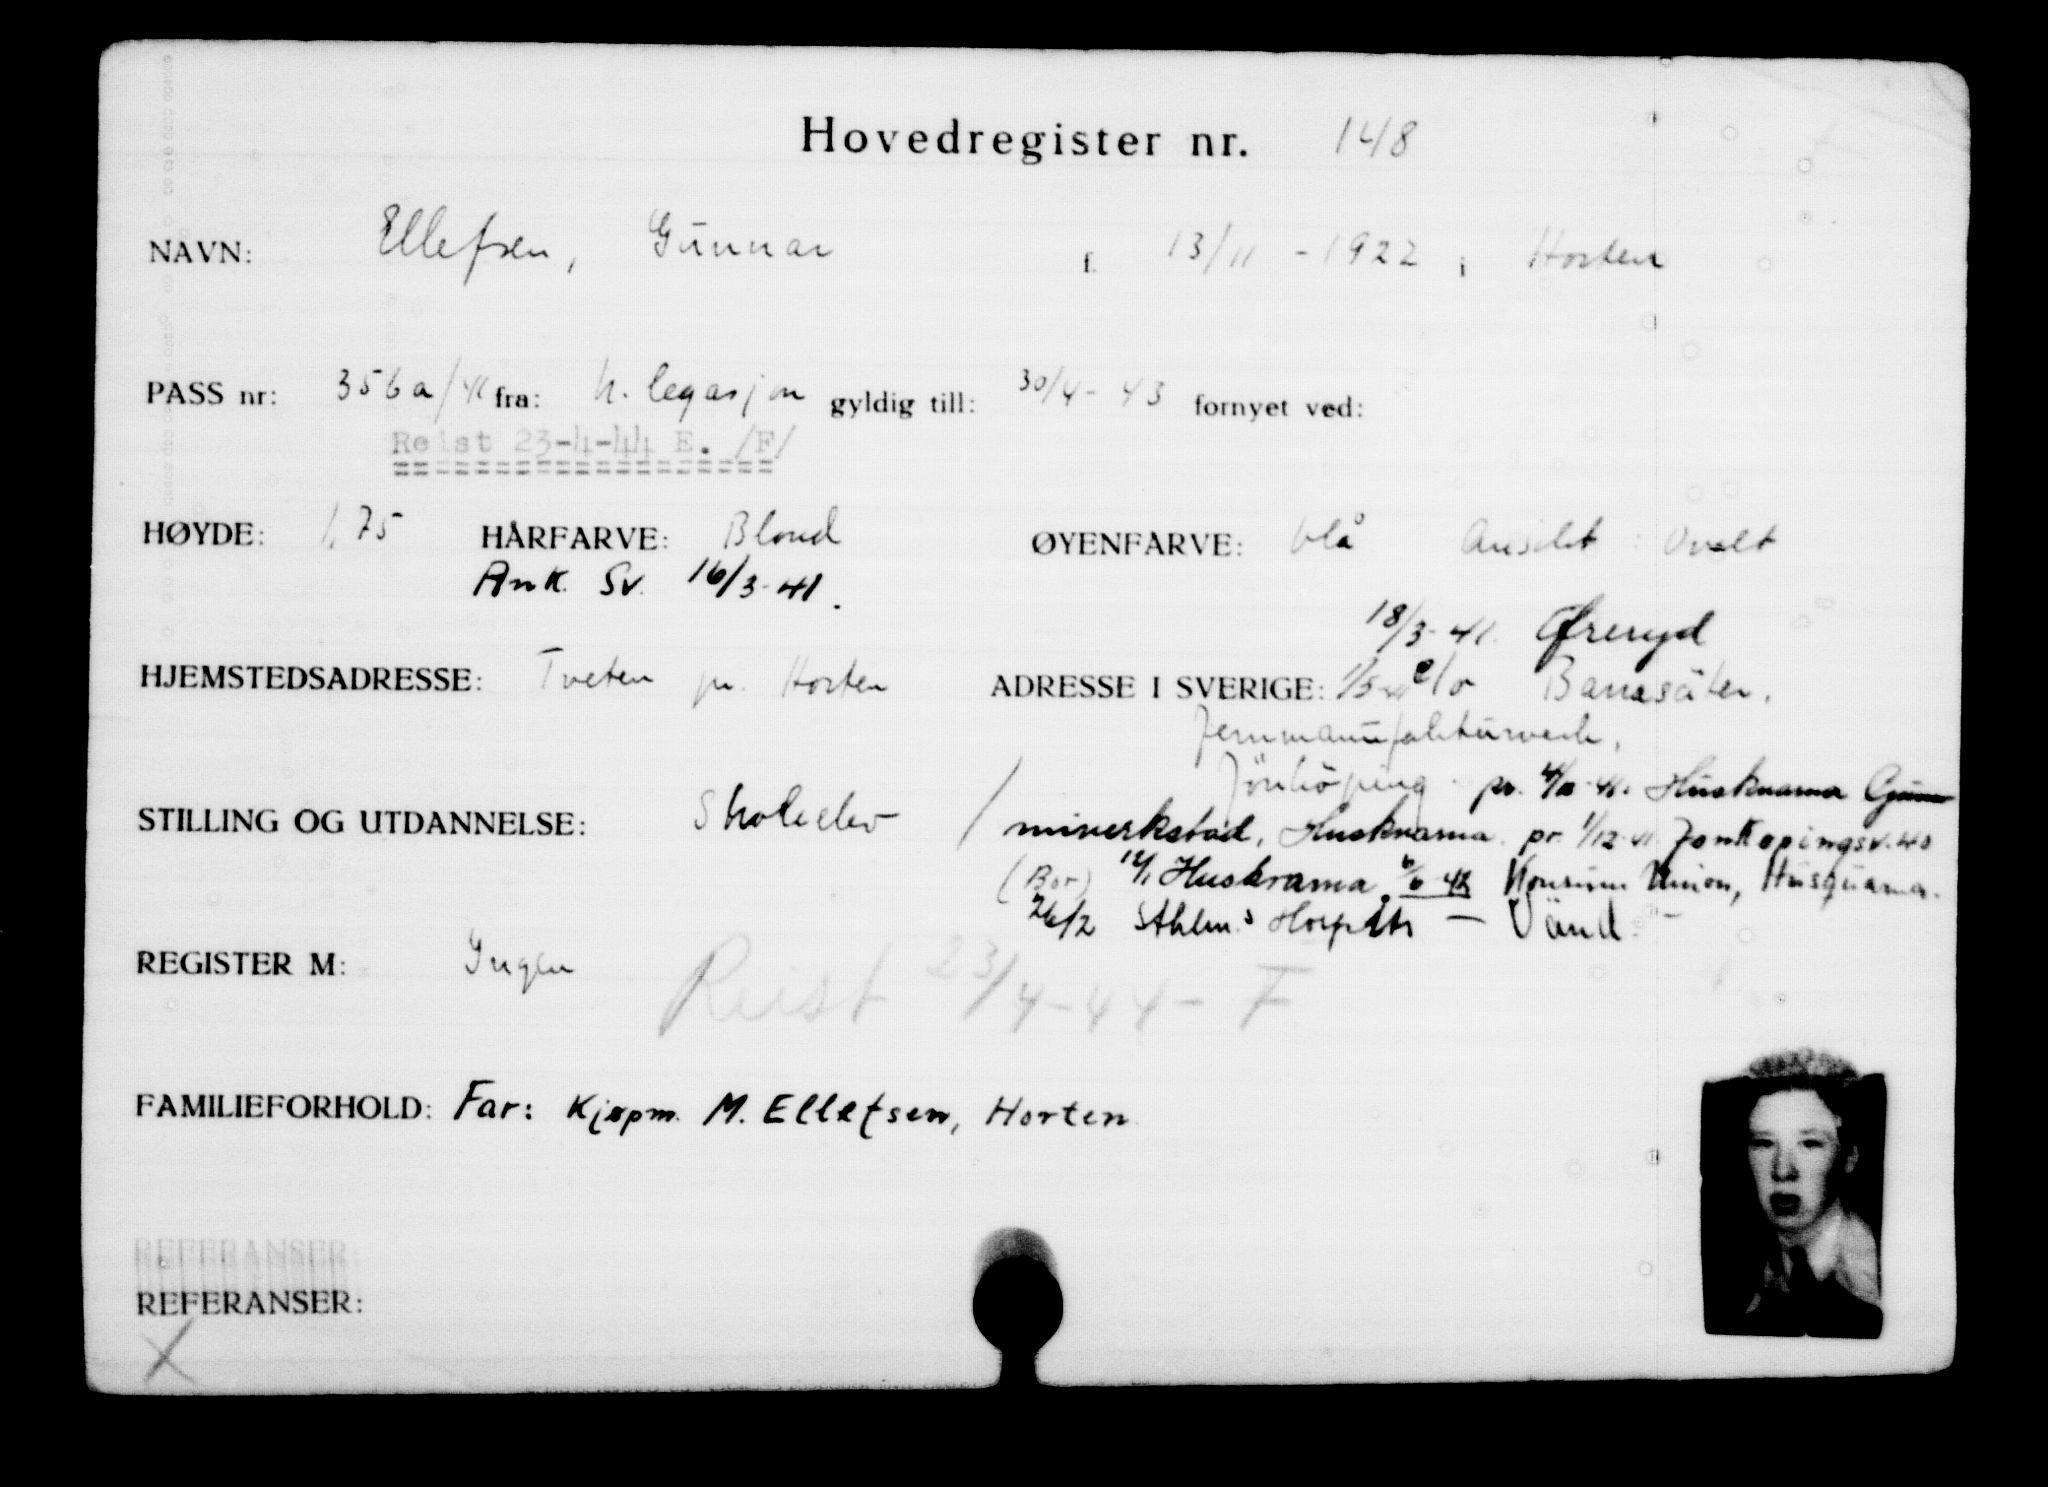 Hovedregister nr. 148
NAVN: Ellefsen, Gunnar f. 13/11 - 1922 i Horten
PASS nr: 356a/41 fra: n. legasjon gyldig till: 30/4 - 43 fornyet ved:
Reist 23-4-44 E. /F/
HØYDE: 1,75 HÅRFARVE: Blond ØYENFARVE: blå Ansikt: Ovalt
Ank. Sv. 16/3-41.
18/3-41. Øreryd
HJEMSTEDSADRESSE: Tveten pr. Horten ADRESSE I SVERIGE: c/o Banesäter,
Jernmanufakturverk,
Jönköping pr. Husknarna
STILLING OG UTDANNELSE: Skoleelev / miverkstad, Husknarna. pr. 1/12-41 Jonkopingsv. 40
(Bor) 12/1 Husknarna 6/6-42 Konsum Union, Husquarna.
26/2 Sthlm.s Hospits — Vänd. —
REGISTER M: Ingen
Reist 23/4-44 - F
FAMILIEFORHOLD: Far: Kjøpm. M. Ellefsen, Horten.
REFERANSER:
REFERANSER:
X